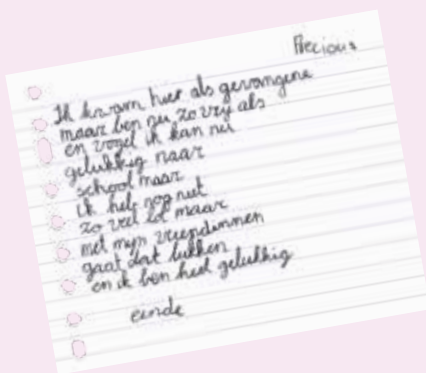 Precious
Ik kwam hier als gevangene
maar ben nu zo vrij als
en vogel ik kan nu
gelukkig naar
school maar
ik heb nog niet
zo veel tot maar
met mijn vriendinnen
gaat dat lukken
en ik ben heel gelukkig
einde